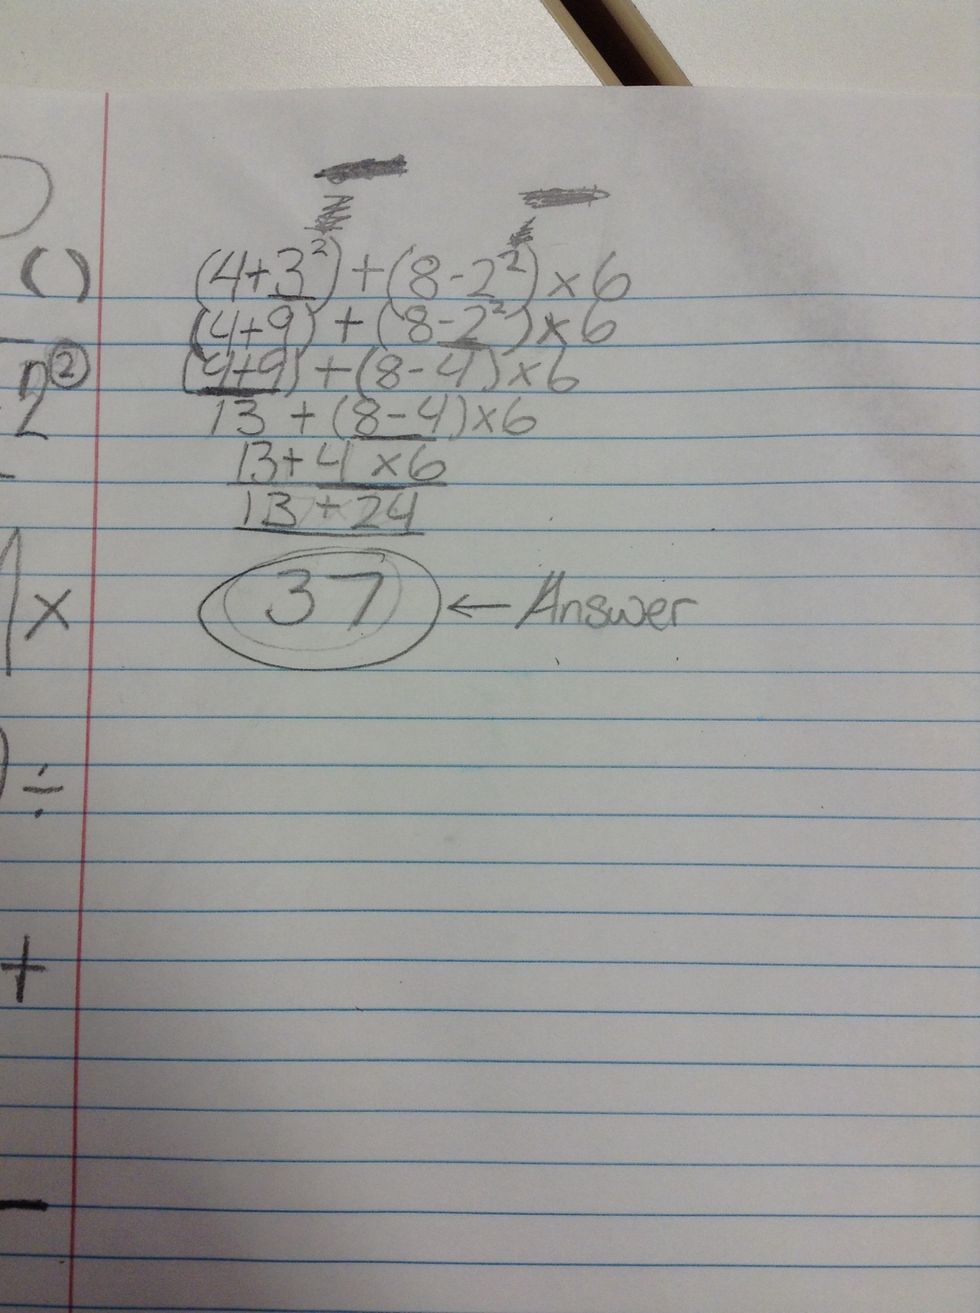 ( )
(4+3²)+(8-2²)×6
(4+9)+(8-2²)×6
2²
(4+9)+(8-4)×6
13+(8-4)×6
13+4×6
13+24
×
37 ← Answer
÷
+
-